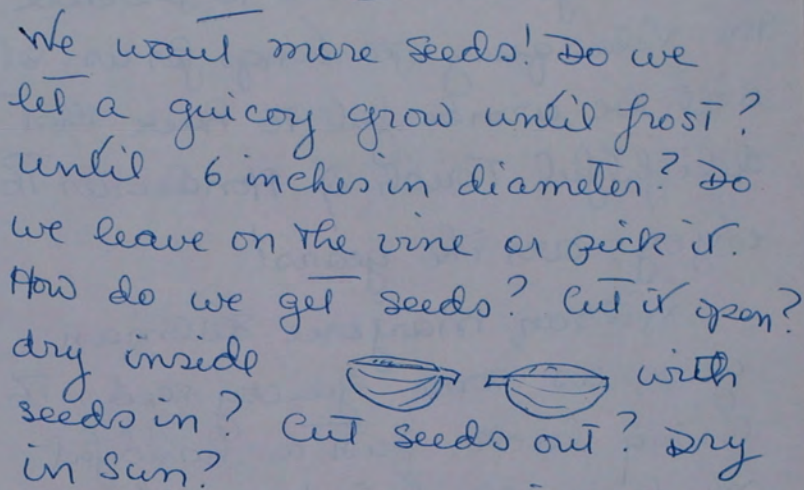 We want more seeds! Do we
let a guicoy grow until frost?
until 6 inches in diameter? Do
we leave on the vine or pick it.
How do we get seeds? Cut it open?
dry inside with
seeds in? Cut seeds out? Dry
in sun?